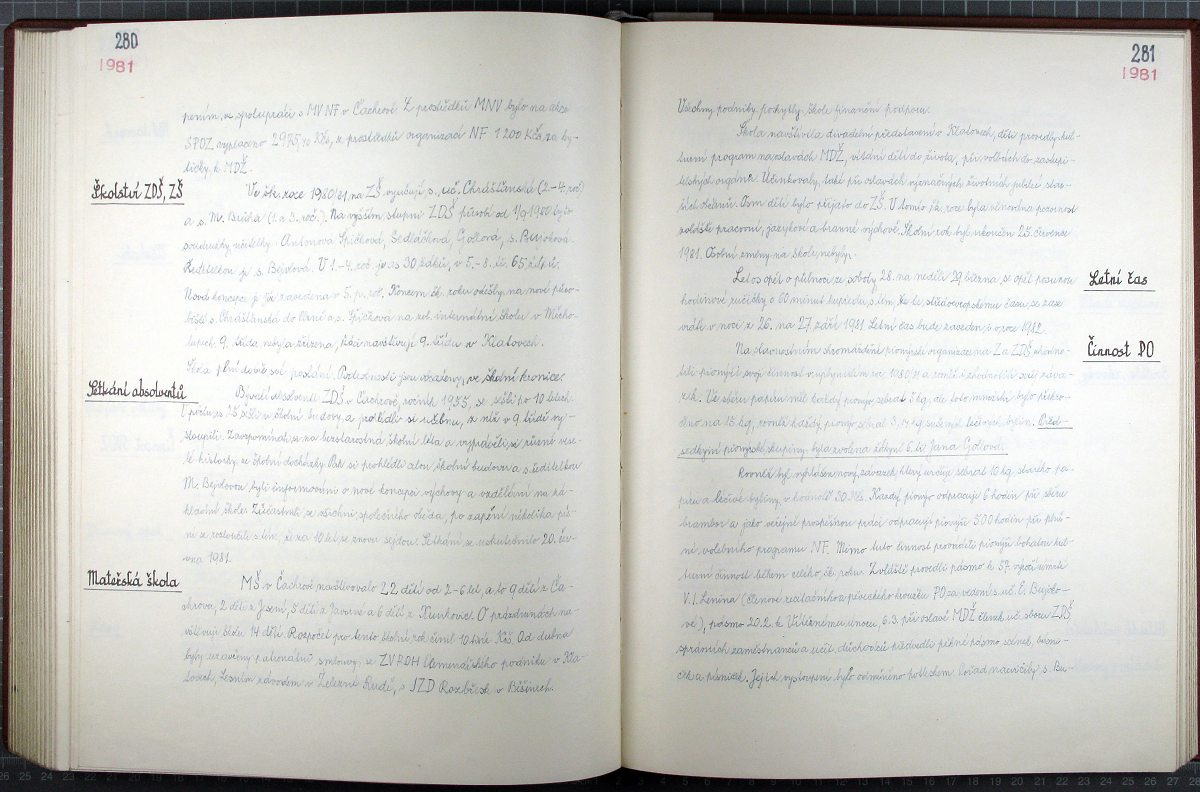 280
1981
pením, ve spolupráci s MV NF v Čachrově. Z prostředků MNV bylo na akce
SPOZ vyplaceno 2975,10 Kčs, z prostředků organizací NF 1 200 Kčs, za ky-
tičky k MDŽ.
Školství ZDŠ, ZŠ
Ve šk. roce 1980/81 na ZŠ vyučují s. uč. Chrášťanská (2.-4. roč.)
a s. M. Brůhá (1. a 3. roč.). Na vyšším stupni ZDŠ působí od 1/9 1980 tyto
soudružky učitelky: Antonová, Špičková, Sedláčková, Gollová, s. Bujoková.
Ředitelkou je s. Bejvlová. V 1.-4. roč. je 30 žáků, v 5.-8. tř. 65 žáků.
Nová koncepce je již zavedena v 5. p. roč. Koncem šk. roku odešly na nové působ-
iště s. Chrášťanská do a s. Špičková na zvl. internátní školu v Měcho-
lupech. 9. třída nebyla zřízena, žáci navštěvují 9. třídu v Klatovech.
Škola plní dobře své poslání. Podrobnosti jsou uvedeny ve školní kronice.
Setkání absolventů
Bývalí absolventi ZDŠ v Čachrově, ročník 1955, se sešli po 10 letech
v počtu 25 žáků v školní budovy a poseděli si v učebnu, z níž v 9. třídě vy-
stoupili. Zavzpomínali si na bezstarostná školní léta a vyprávěli si různé vese-
lé historky ze školní docházky. Pak si prohlédli celou školní budovu a s ředitelkou
M. Bejvlovou byli informováni o nové koncepci výchovy a vzdělání na zá-
kladní škole. Zúčastnili se všichni společného oběda, po zapění několika pís-
ní se rozloučili s tím, že za 10 let se znovu sejdou. Setkání se uskutečnilo 20. čer-
vna 1981.
Mateřská škola
MŠ v Čachrově navštěvovalo 22 dětí od 2-6 let, a to 9 dětí z Ča-
chrova, 2 děti z Jesení, 5 dětí z Javorné a 6 dětí z Kunkovic. O prázdninách na-
vštěvuji školu 14 dětí. Rozpočet pro tento školní rok činil 10 tisíc Kčs. Od dubna
byly uzavřeny patronátní smlouvy se ZV ROH Kamenářského podniku v Kla-
tovech, Lesním závodem v Železné Rudě, s JZD Rozbřesk v Běšinech.
281
1981
Všechny podniky poskytly škole finanční podporu.
Škola navštívila divadelní představení v Klatovech, děti provedly kul-
turní program na oslavách MDŽ, vítání dětí do života, při volbách do zastupi-
telských orgánů. Účinkovaly také při oslavách význačných životních jubileí star-
ších občanů. Osm dětí bylo přijato do ZŠ. V tomto šk. roce byla věnována pozornost
zvláště pracovní, jazykové a branné výchově. Školní rok byl ukončen 23. července
1981. Osobní změny na škole nebyly.
Letní čas
Letos opět o půlnoci ze soboty 28. na neděli 29. března se opět posunou
hodinové ručičky o 60 minut kupředu s tím, že ke středoevropskému času se zase
vrátí v noci z 26. na 27. září 1981. Letní čas bude zaveden i v roce 1982.
Činnost PO
Na slavnostním shromáždění pionýrské organizace na ZŠ a ZDŠ zhodno-
tili pionýři svoji činnost v uplynulém roce 1980/81 a rovněž i zhodnotili svůj záva-
zek. Ve sběru papíru měl každý pionýr sebrat 5 kg, ale toto množství bylo překro-
čeno na 15 kg, rovněž každý pionýr sebral 3,14 kg sušených léčivých bylin. Před-
sedkyní pionýrské skupiny byla zvolena žákyně 6. tř. Jana Gollová.
Rovněž byl vyhlášen nový závazek, který určuje sebrat 10 kg starého pa-
píru a léčivé byliny v hodnotě 30 Kčs. Každý pionýr odpracuje 6 hodin při sběru
brambor a jako veřejně prospěšnou práci odpracují pionýři 500 hodin při plně-
ní volebního programu NF. Mimo tuto činnost prováděli pionýři bohatou kul-
turní činnost během celého šk. roku. Zvláště provedli pásmo k 57. výročí úmrtí
V. I. Lenina (členové recitačního a pěveckého kroužku PO za vedení s. uč. E. Bujoko-
vé), pásmo 20.2. k Vítěznému únoru, 6.3. při oslavě MDŽ členek uč. sboru ZDŠ,
správních zaměstnanců a učit. důchodců předvedli pěkné pásmo scének, básni-
ček a písniček. Jejich vystoupení bylo odměněno potleskem. Pořad nacvičily s. Bu-